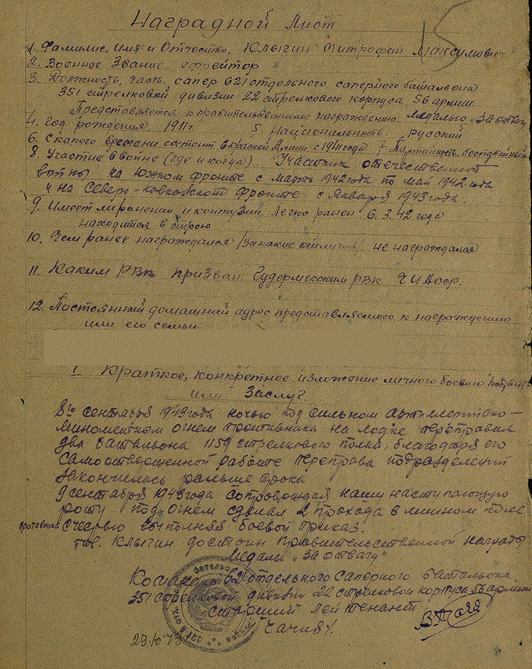 15
Наградной Лист
1. Фамилия, имя и Отчество, Клыгин Митрофан Максимович
2. Военное Звание. ефрейтор
3. Должность, часть. сапер 621 отдельного саперного батальона
351 стрелковой дивизии 22 стрелкового корпуса 56 армии.
Представляется к правительственной награждению. Медалью "За отвагу"
4. Год рождения. 1911г. 5 Национальность. русский
6. С какого времени состоит в Красной Армии. с 1941 года 7 Партийность. беспартийный
8. Участие в войне (где и когда). Участник отечественной
войны на Южном фронте с марта 1942 года по май 1942 года
и на Северо-Кавказском фронте с Января 1943 года
9. Имеет ли ранения и контузии. Легко ранен 6.3.42 года
находится в строю
10. Чем ранее награждался /за какие отличия/ не награждался
11. Каким РВК призван. Гудермесским РВК ЧИАсср.
12. Постоянный домашний адрес представляемого к награждению
или его семьи
I Краткое, конкретное изложение личного боевого подвига
или Заслуг.
8го сентября 1943 года ночью под сильном артиллерийско-
миномётном огнем противника на лодке переправил
два батальона 1159 стрелкового полка, благодаря его
самоотверженной работе переправа подразделений
закончилась раньше срока
9 сентября 1943 года сопровождая нашу наступающую
роту под огнем сделал 2 прохода в минном поле
противника
выполняя боевой приказ.
тов. Клыгин достоин правительственной награды
Медали "За отвагу"
Командир 621 отдельного саперного батальона
351 стрелковой дивизии 22 стрелкового корпуса 56 армии
старший лейтенант